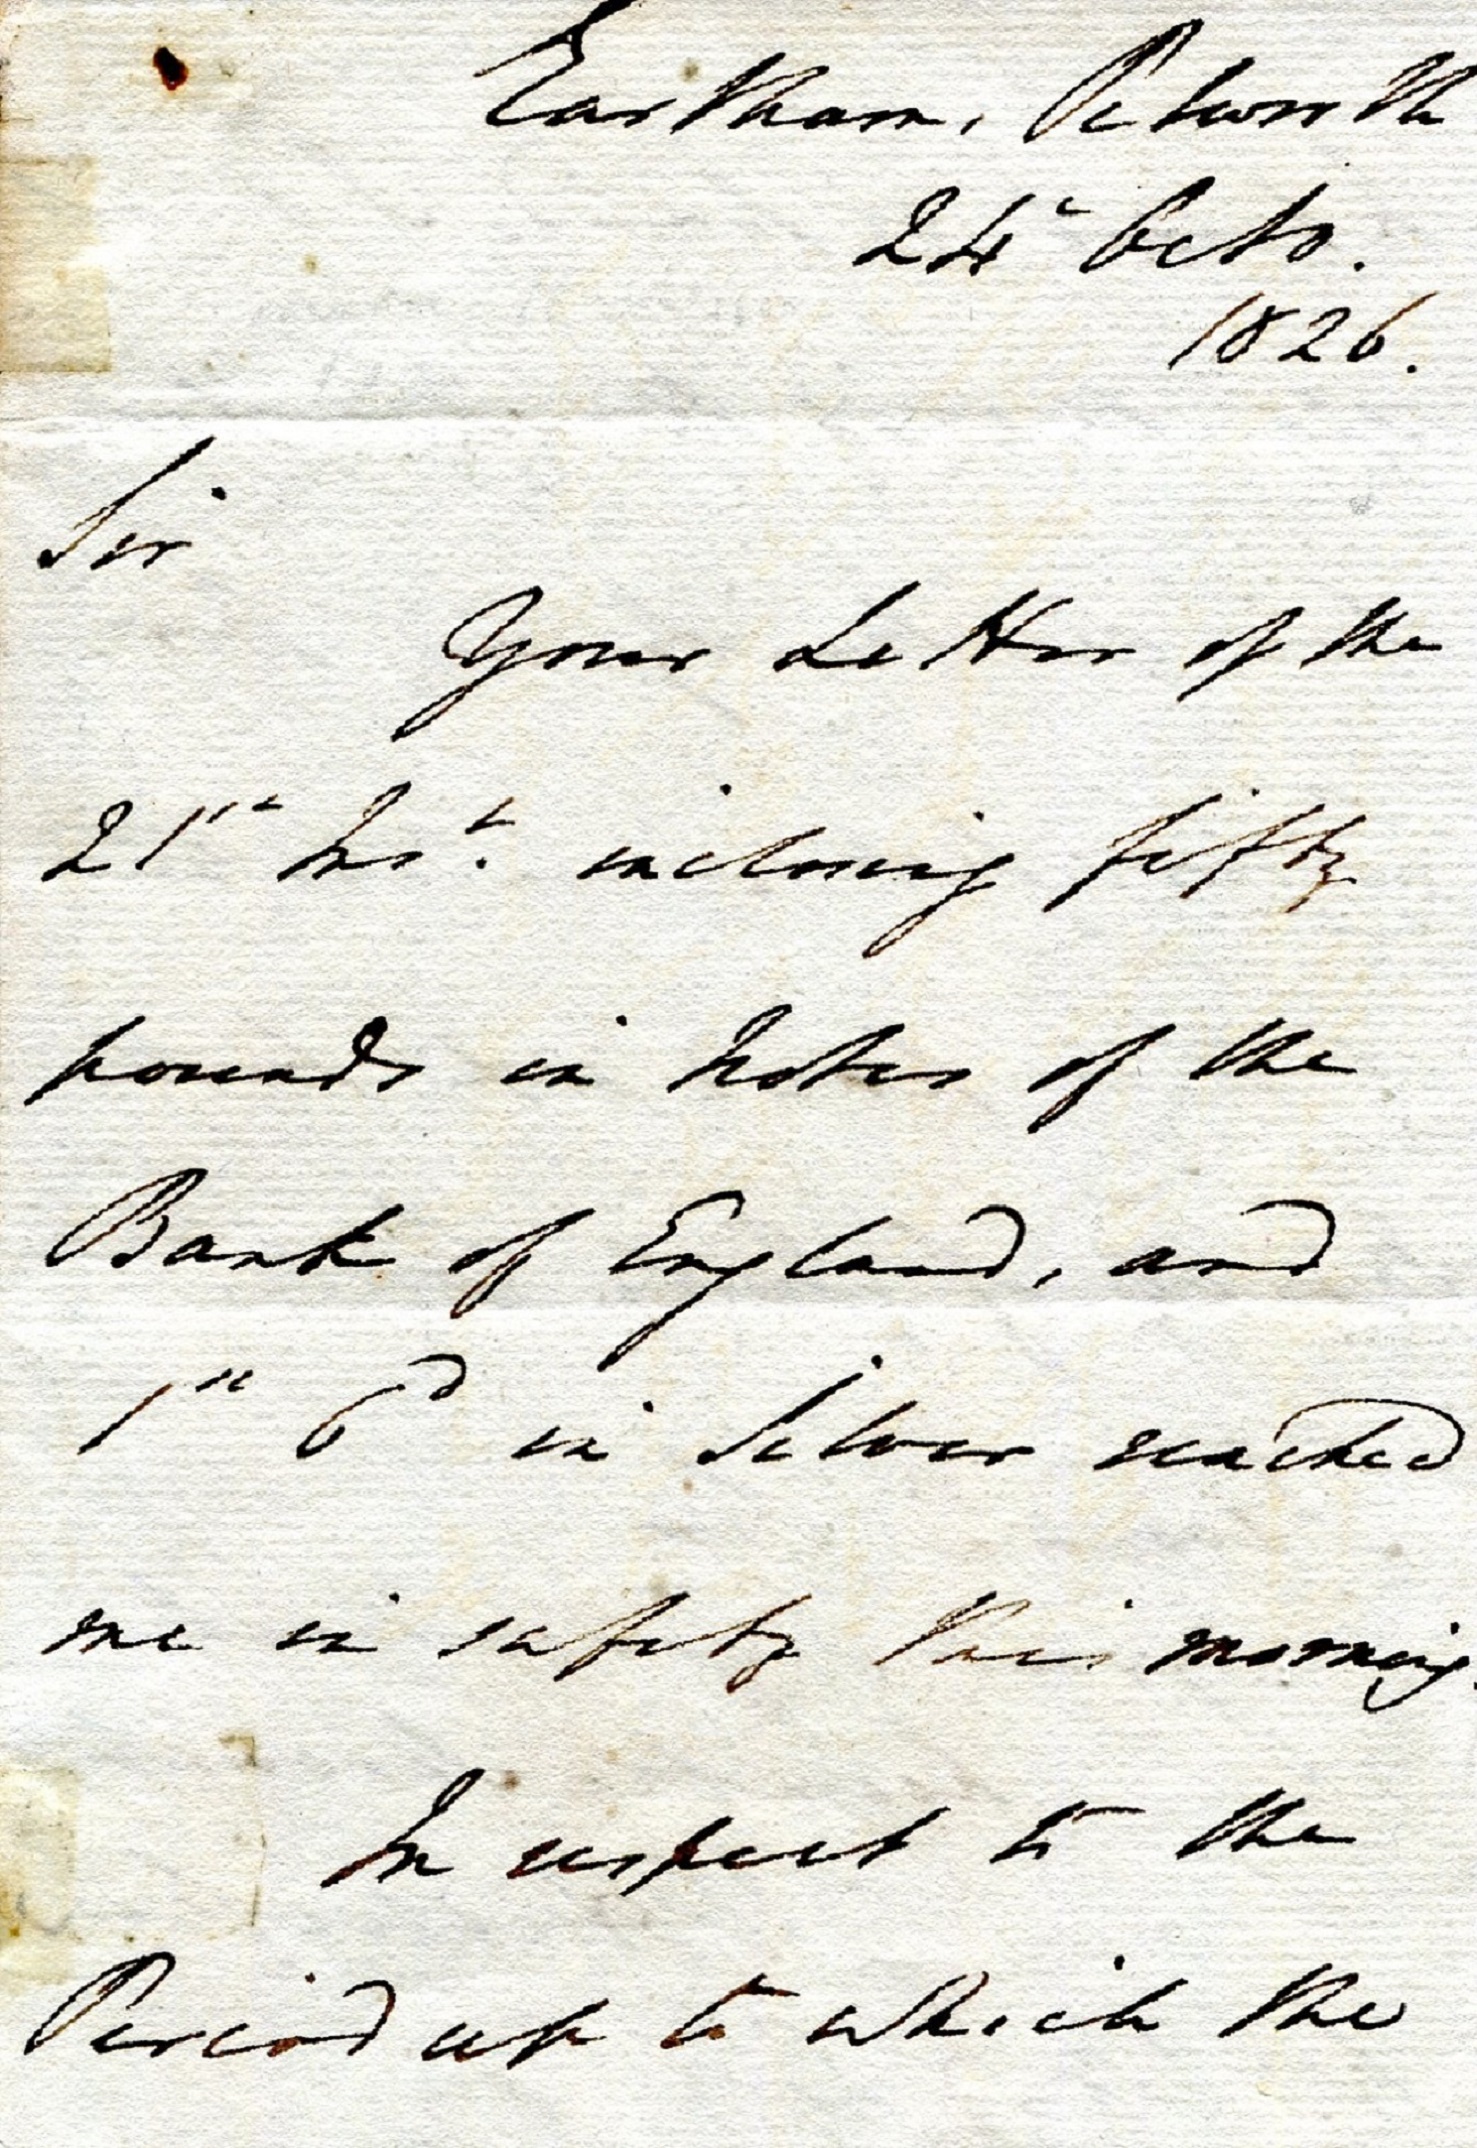 Eartham, Petworth
24th Octo.
1826.
Sir
Your Letter of the
21st Inst. inclosing fifty
pounds in Notes of the
Bank of England, and
1s 6d in Silver reached
me in safety this morning.
In respect to the
Period up to which the